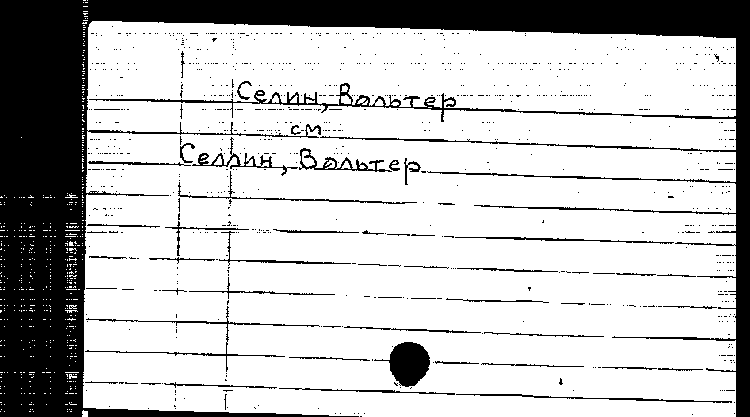 Селин, Вальтер
см
Селлин, Вальтер